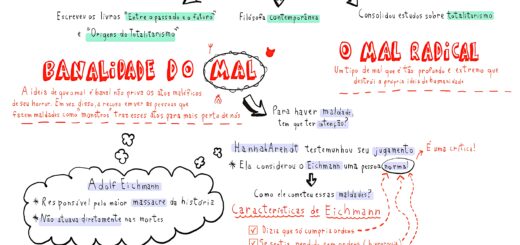 Escreveu os livros "Entre o passado e o futuro"
e "Origens do Totalitarismo"
Filósofa contemporânea
Consolidou estudos sobre totalitarismo
BANALIDADE DO MAL
A ideia de que o mal é banal não priva os atos maléficos
de seu horror. Em vez disso, a recusa em ver as pessoas que
fazem maldades como "monstros" tras esses atos para mais perto de nós
O MAL RADICAL
Um tipo de mal que é tão profundo e extremo que
destrói a própria ideia de humanidade
Para haver maldade,
tem que ter intenção?
Hannah Arendt testemunhou seu julgamento
É uma crítica!
* Ela considerou o Eichmann uma pessoa normal
Adolf Eichmann
* Responsável pelo maior massacre da história
* Não atuava diretamente nas mortes
Como ele cometeu essas maldades?
Características de Eichmann
Dizia que só cumpria ordens